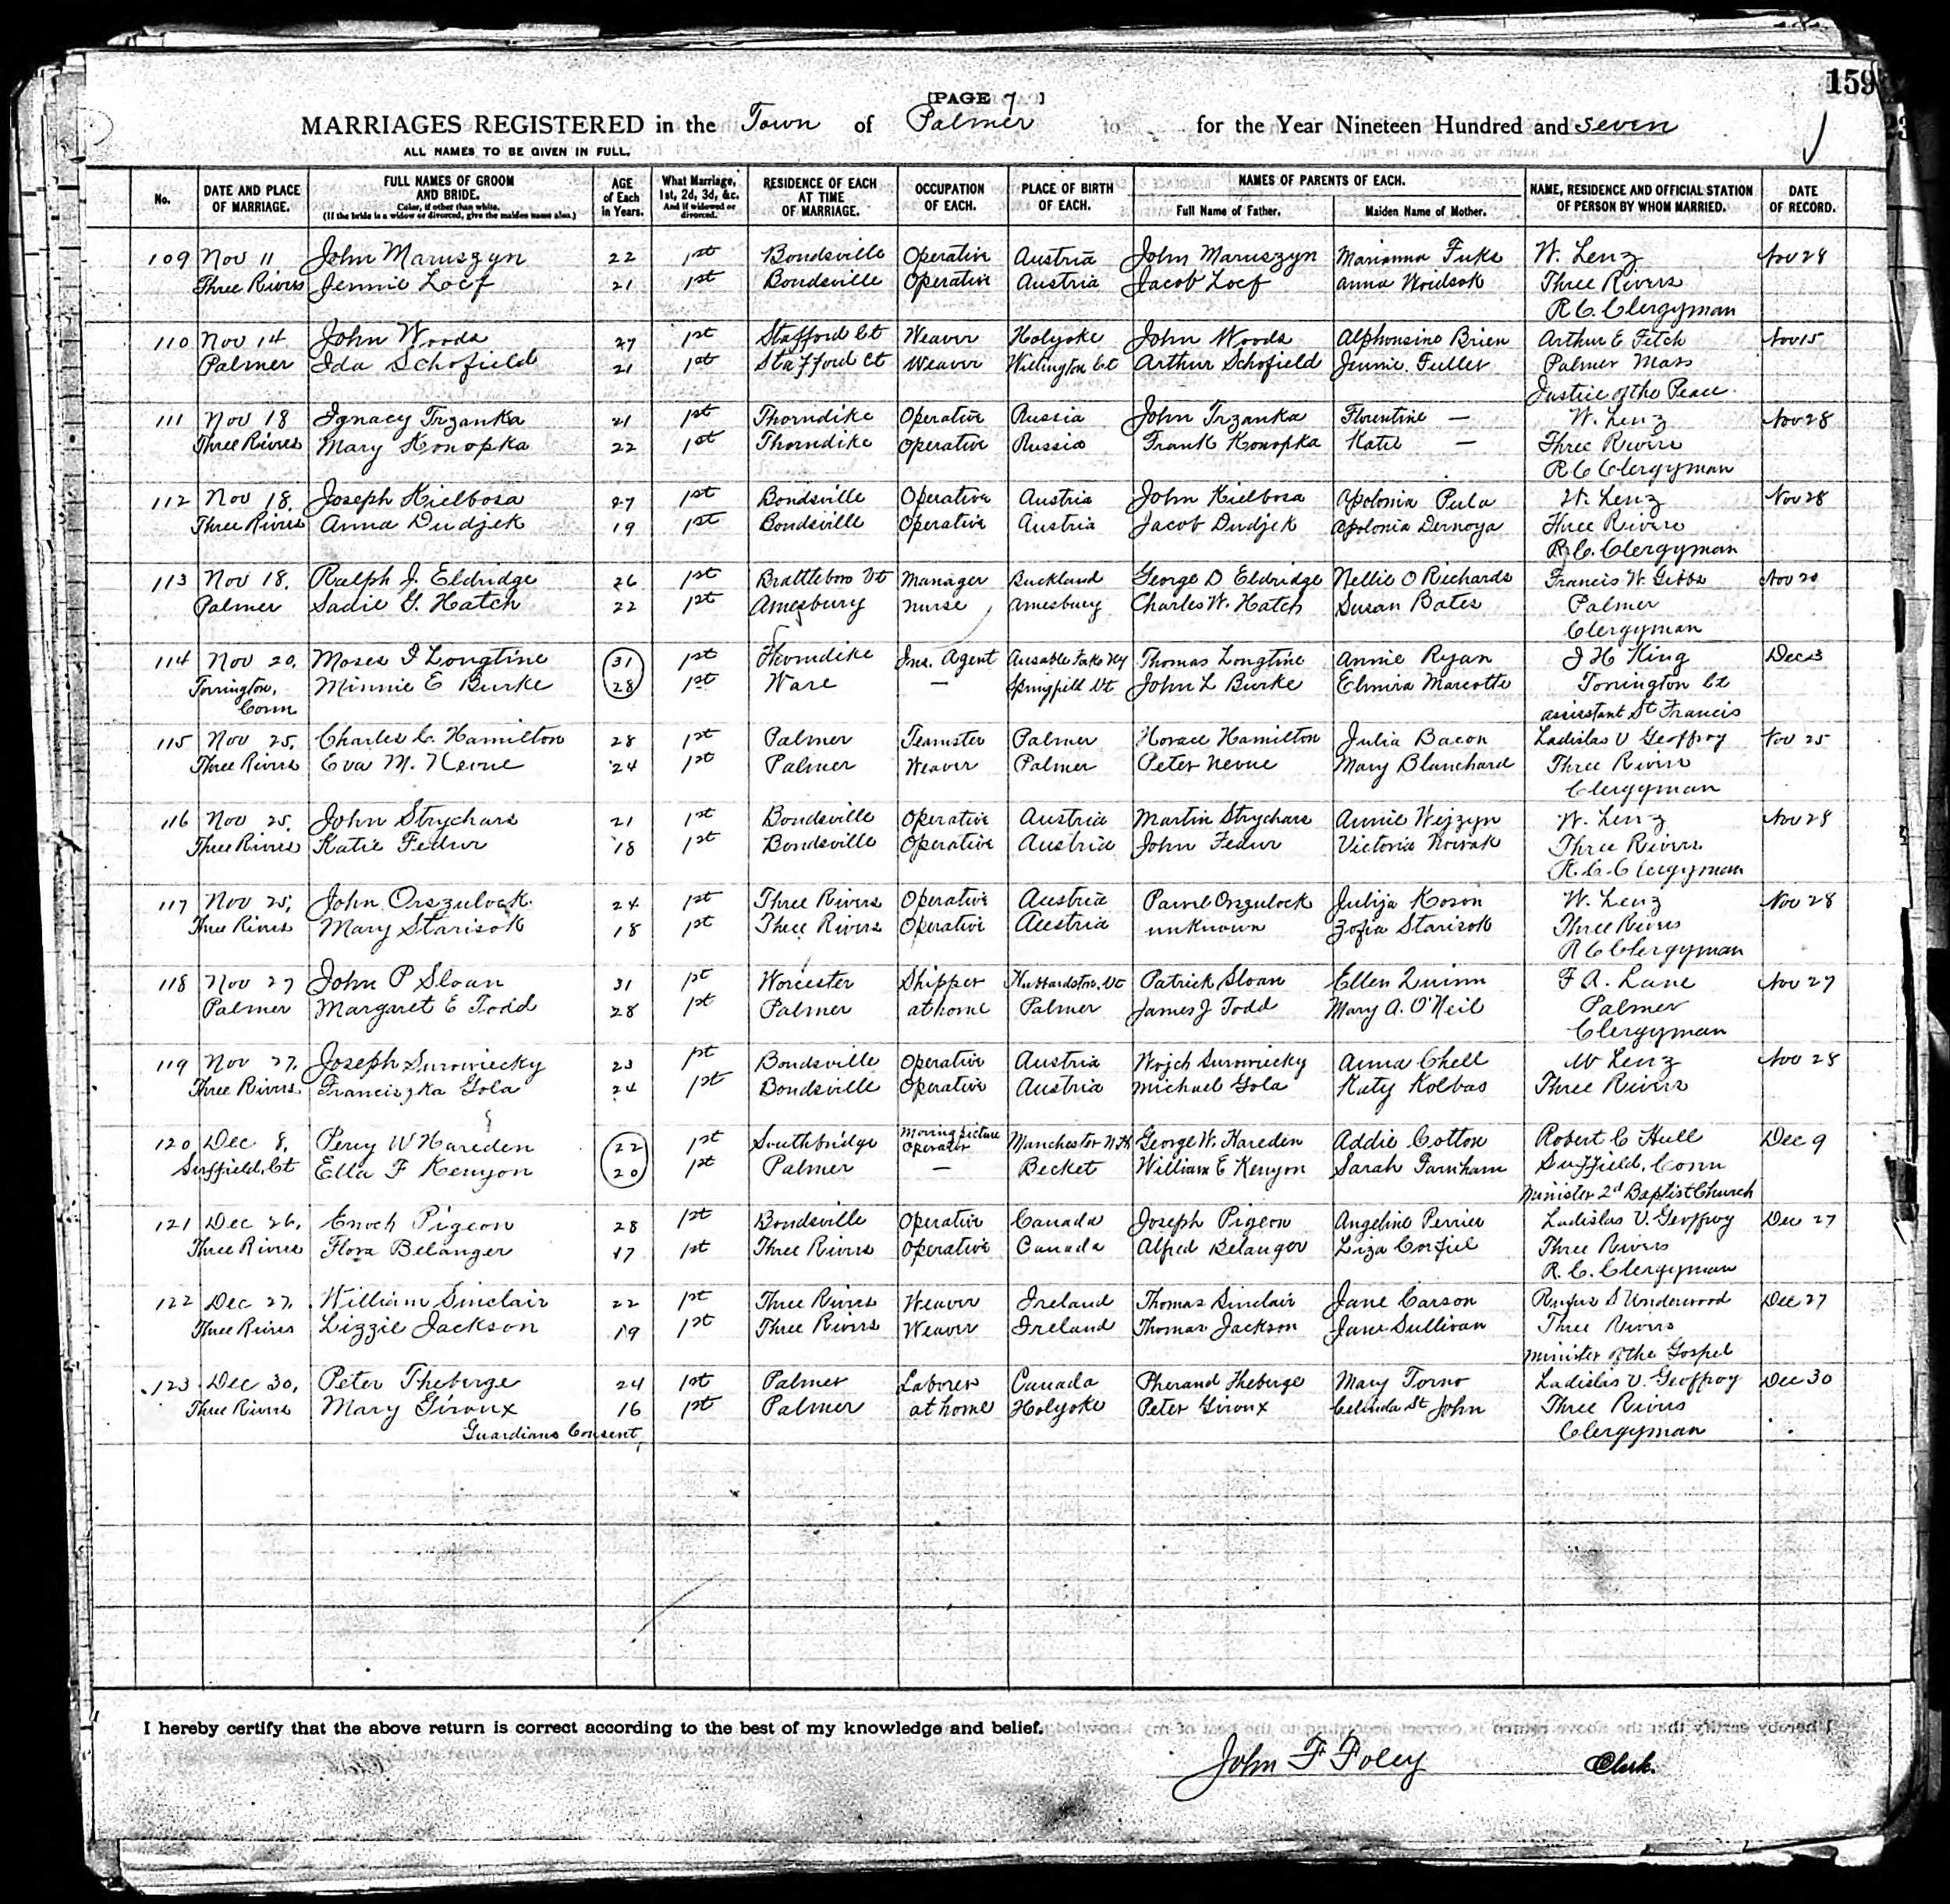 159
[PAGE 7 ]
MARRIAGES REGISTERED in the Town of Palmer for the Year Nineteen Hundred and Seven
ALL NAMES TO BE GIVEN IN FULL.
No. DATE AND PLACE OF MARRIAGE. FULL NAMES OF GROOM AND BRIDE. Color, if other than white. (If the bride is a widow or divorced, give the maiden name also.) AGE of Each in Years. What Marriage, 1st, 2d, 3d, &c. And if widowed or divorced. RESIDENCE OF EACH AT TIME OF MARRIAGE. OCCUPATION OF EACH. PLACE OF BIRTH OF EACH. NAMES OF PARENTS OF EACH. Full Name of Father. Maiden Name of Mother. NAME, RESIDENCE AND OFFICIAL STATION OF PERSON BY WHOM MARRIED. DATE OF RECORD.
109 Nov 11 John Maruszyn 22 1st Bondsville Operative Austria John Maruszyn Marianna Fuks W. Lenz Nov 28
Three Rivers Jennie Locf 21 1st Bondsville Operative Austria Jacob Locf Anna Woidsok Three Rivers
R.C. Clergyman
110 Nov 14. John Woods 27 1st Stafford Ct Weaver Holyoke John Woods Alphonsine Brien Arthur E Fitch Nov 15
Palmer Ida Schofield 21 1st Stafford Ct Weaver Willington Ct Arthur Schofield Jennie Fuller Palmer Mass
Justice of the Peace
111 Nov 18 Ignacy Trzanka 21 1st Thorndike Operative Russia John Trzanka Florentine — W. Lenz Nov 28
Three Rivers Mary Konopka 22 1st Thorndike Operative Russia Frank Konopka Katie — Three Rivers
R C Clergyman
112 Nov 18. Joseph Kielbosa 27 1st Bondsville Operative Austria John Kielbosa Apolonia Pula W. Lenz Nov 28
Three Rivers Anna Dudzek 19 1st Bondsville Operative Austria Jacob Dudzek Apolonia Dernoga Three Rivers
R.C. Clergyman
113 Nov 18. Ralph J. Eldridge 26 1st Brattleboro Vt Manager Buckland George D Eldridge Nellie O Richards Francis W. Gibbs Nov 20
Palmer Sadie G. Hatch 22 1st Amesbury Nurse Amesbury Charles W. Hatch Susan Bates Palmer
Clergyman
114 Nov 20, Moses I Longtine 31 1st Thorndike Ins. Agent Ausable Forks NY Thomas Longtine Annie Ryan J H King Dec 3
Torrington, Minnie E Burke 28 1st Ware — Springfield Vt John L Burke Elmira Marcotte Torrington Ct
Conn assistant St Francis
115 Nov 25, Charles C. Hamilton 28 1st Palmer Teamster Palmer Horace Hamilton Julia Bacon Ladislas V Geoffroy Nov 25
Three Rivers Eva M. Nevue 24 1st Palmer Weaver Palmer Peter Nevue Mary Blanchard Three Rivers
Clergyman
116 Nov 25. John Strychars 21 1st Bondsville Operative Austria Martin Strychars Annie Wezzyn W. Lenz Nov 28
Three Rivers Katie Fedur 18 1st Bondsville Operative Austria John Fedur Victoria Nowak Three Rivers
R.C. Clergyman
117 Nov 25, John Orszulock 24 1st Three Rivers Operative Austria Pawel Orszulock Julija Koson W. Lenz Nov 28
Three Rivers Mary Starisok 18 1st Three Rivers Operative Austria unknown Zofia Starisok Three Rivers
R C Clergyman
118 Nov 27 John P Sloan 31 1st Worcester Shipper Hubbardston, Vt Patrick Sloan Ellen Quinn F A. Lane Nov 27
Palmer Margaret E Todd 28 1st Palmer at home Palmer James J Todd Mary A. O'Neil Palmer
Clergyman
119 Nov 27. Joseph Surowiecky 23 1st Bondsville Operative Austria Wojch Surowiecky Anna Chell W Lenz Nov 28
Three Rivers. Franciszka Gola 24 1st Bondsville Operative Austria Michael Gola Katy Kolbas Three Rivers
120 Dec 8, Percy W Hareden 22 1st Southbridge Moving picture Operator Manchester N.H. George W. Hareden Addie Cotton Robert C Hull Dec 9
Suffield, Ct Ella F Kenyon 20 1st Palmer — Becket William E Kenyon Sarah Farnham Suffield, Conn
Minister 2d Baptist Church
121 Dec 26, Enoch Pigeon 28 1st Bondsville Operative Canada Joseph Pigeon Angeline Perrier Ladislas V. Geoffroy Dec 27
Three Rivers Flora Belanger 17 1st Three Rivers Operative Canada Alfred Belanger Liza Corfiel Three Rivers
R. C. Clergyman
122 Dec 27, William Sinclair 22 1st Three Rivers Weaver Ireland Thomas Sinclair Jane Carson Rufus S Underwood Dec 27
Three Rivers Lizzie Jackson 19 1st Three Rivers Weaver Ireland Thomas Jackson Jane Sullivan Three Rivers
Minister of the Gospel
123 Dec 30, Peter Theberge 24 1st Palmer Laborer Canada Pherand Theberge Mary Torno Ladislas V. Geoffroy Dec 30
Three Rivers Mary Giroux 16 1st Palmer at home Holyoke Peter Giroux Celinda St John Three Rivers
Guardians Consent, Clergyman
I hereby certify that the above return is correct according to the best of my knowledge and belief.
John F Foley Clerk.